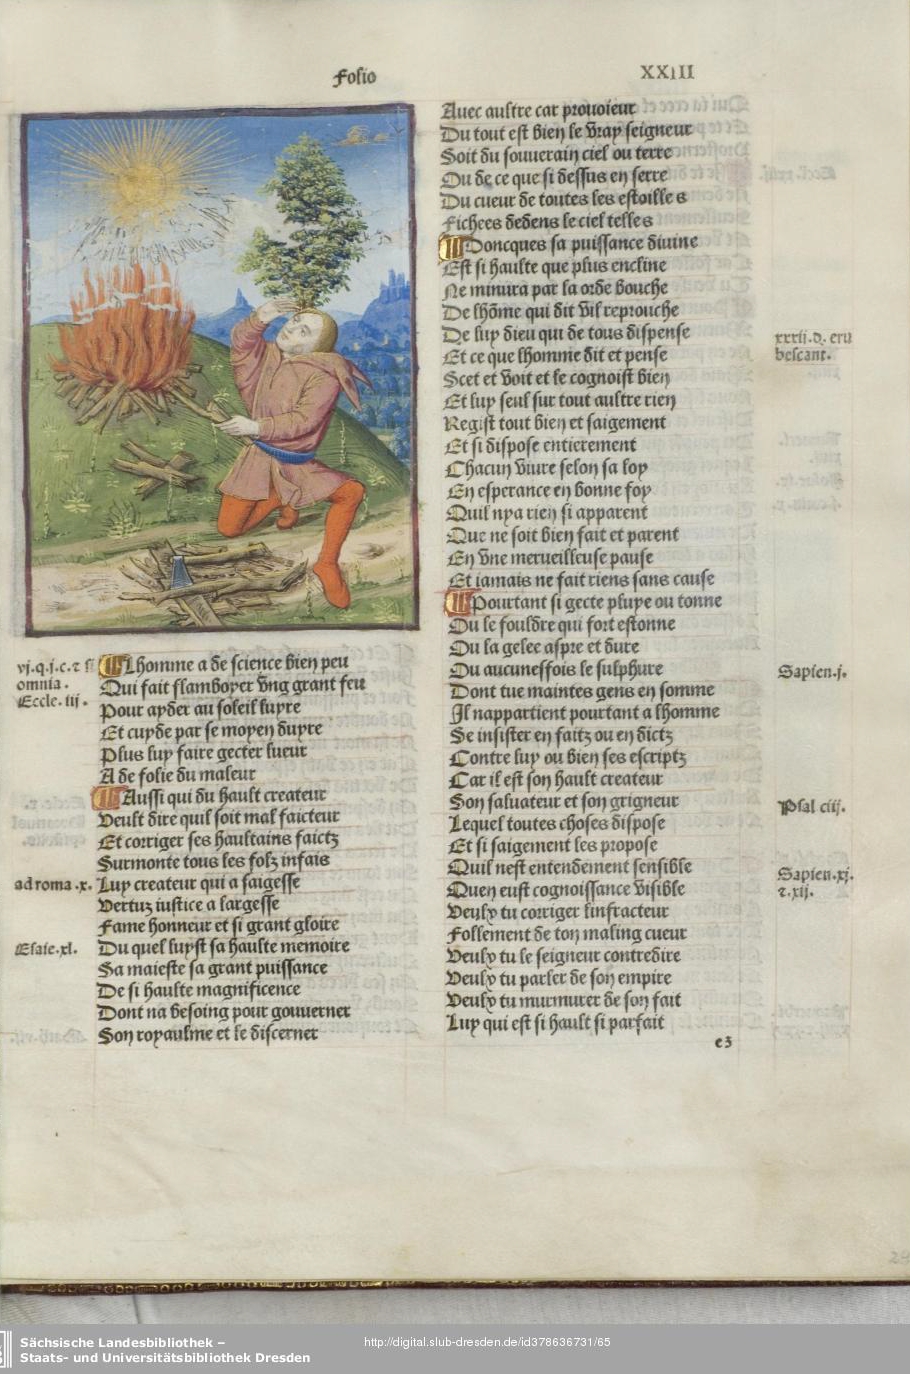 Folio
XXIII
vj.q.j.c.τ si
omnia.
Eccle.iij.
Lhomme a de science bien peu
Qui fait flamboyer vng grant feu
Pour ayder au soleil luyre
Et cuyde par se moyen duyre
Plus luy faire gecter lueur
A de folie du maleur
Aussi qui du hault createur
Veult dire quil soit mal faicteur
Et corriger ses haultains faictz
Surmonte tous les folz infais
ad roma.x.
Luy createur qui a saigesse
Vertuz iustice a largesse
Fame honneur et si grant gloire
Esaie.xl.
Du quel luyst sa haulte memoire
Sa maieste sa grant puissance
De si haulte magnificence
Dont na besoing pour gouuerner
Son royaulme et le discerner
Auec aultre car prouoieur
Du tout est bien le vray seigneur
Soit du souuerain ciel ou terre
Ou de ce que si dessus en serre
Du cueur de toutes les estoilles
Fichees dedens le ciel telles
Doncques sa puissance diuine
Est si haulte que plus encline
Ne minura par la orde bouche
De lhõme qui dit vil reprouche
De luy dieu qui de tous dispense
xxxii.d. eru
bescant.
Et ce que lhomme dit et pense
Scet et voit et le cognoist bien
Et luy seul sur tout aultre rien
Regist tout bien et saigement
Et si dispose entierement
Chacun viure selon sa loy
En esperance en bonne foy
Quil nya rien si apparent
Que ne soit bien fait et parent
En vne merueilleuse pause
Et iamais ne fait riens sans cause
Pourtant si gecte pluye ou tonne
Ou le fouldre qui fort estonne
Ou la gelee aspre et dure
Ou aucunesfois le sulphure
Sapien.j.
Dont tue maintes gens en somme
Il nappartient pourtant a lhomme
Se insister en faitz ou en dictz
Contre luy ou bien ses escriptz
Car il est son hault createur
Son saluateur et son grigneur
Psal ciij.
Lequel toutes choses dispose
Et si saigement les propose
Quil nest entendement sensible
Sapien.xj.
τ.xij.
Quen eust cognoissance visible
Veulx tu corriger linfracteur
Follement de ton maling cueur
Veulx tu le seigneur contredire
Veulx tu parler de son empire
Veulx tu murmurer de son fait
Luy qui est si hault si parfait
e3
Sächsische Landesbibliothek –
Staats- und Universitätsbibliothek Dresden
http://digital.slub-dresden.de/id378636731/65